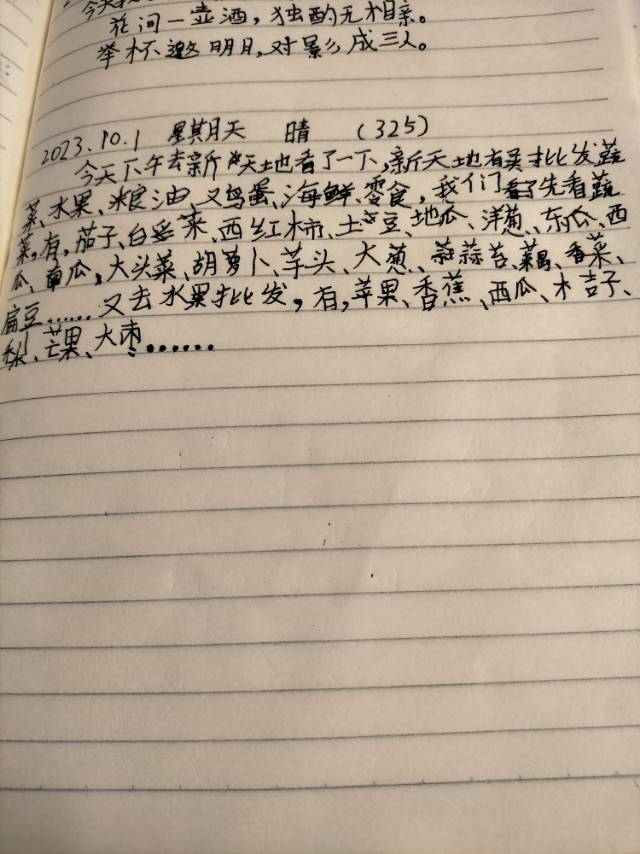 今天
花间一壶酒，独酌无相亲。
举杯邀明月，对影成三人。
2023.10.1 星期天 晴 （325）
今天下午去新天地看了一下，新天地有卖批发蔬
菜、水果、粮油、又鸟蛋、海鲜、零食，我们先看蔬
菜，有，茄子、白菜、西红柿、土豆、地瓜、洋葱、东瓜、西
瓜、南瓜，大头菜、胡萝卜、芋头、大葱、蒜苔、香菜、
扁豆……又去水果批发，有，苹果、香蕉、西瓜、木吉子、
梨、芒果、大枣……